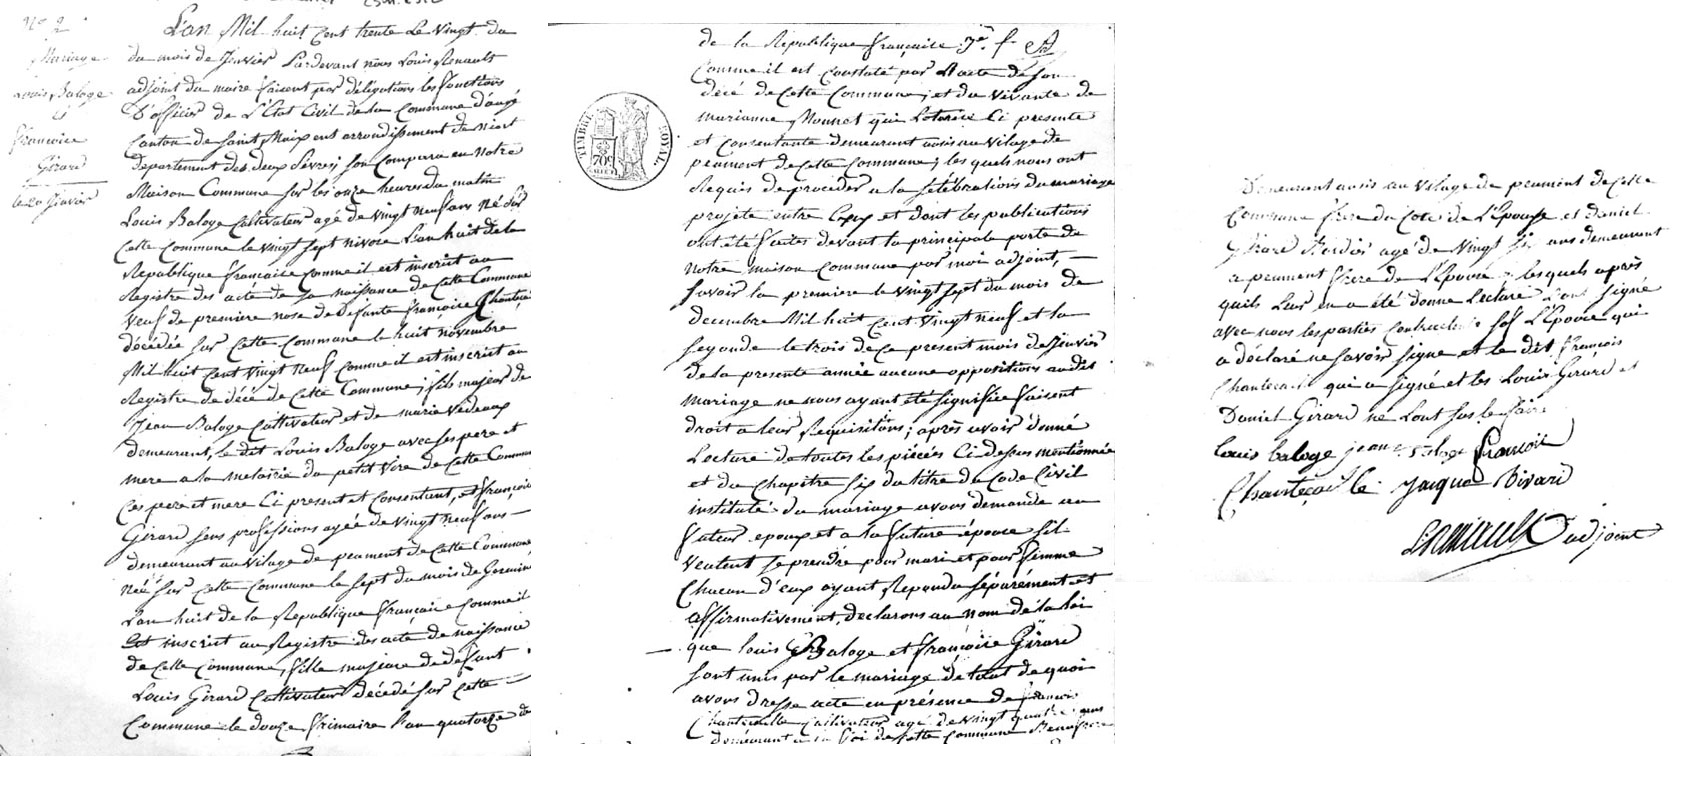 No. 2
Mariage
Louis Baloge
et
francoise
Girard
le 20 Janvier
L'an Mil huit Cent trente Le vingt du
du mois de Janvier Pardevant nous Louis Renault
adjoint du maire faisent par délégations les fonctions
D'officier de L'Etat Civil de la Commune d'augé
Canton de Saint Maixent arrondissement de niort
departement des deux Sevres; son Comparu en Notre
Maison Commune sur les onze heures du matin
Louis Baloge Cultivateur agé de vingt neuf ans Né sur
Cette Commune le vingt sept nivose L'an huit de la
Republique francaise Comme il est inscrit au
Registre des acte de sa naissance de Cette Commune
veuf de premiere nose de defunte francoise Chantec
décédée sur Cette Commune le huit novembre
Mil huit Cent vingt neuf Comme il est inscrit au
Registre de décé de Cette Commune; fils majeur de
Jean Baloge Cultivateur et de marie vedeaux
demeurant, le dit Louis Baloge avec ses pere et
mere a la metairie du petit vire de Cette Commun
Ces pere et mere Ci present et Consentant, et françoise
Girard sens professions agée de vingt neuf ans —
demeurant au vilage de peument de Cette Commune
Née sur Cette Commune le sept du mois de Germin
L'an huit de la Republique française Comme il
Est inscrit au Registre des acte de naissance
de Cette Commune, fille majeure de defunt
Louis Girard Cultivateur décédé sur Cette —
Commune le douze frimaire l'an quatorze de
de la Republique française 7e. f
Comme il est Constaté par L'acte de son
décé de Cette Commune; et du vivante de
marianne Monnet qui L'otorise Ci presente
et Consentante demeurant aussi au vilage de
peument de Cette Commune; les quels nous ont
Requis de proceder a la Sélébrations du mariage
projeté entre Eux et dont les publications
ont été faites devant la principale porte de
Notre maison Commune par moi adjoint, —
savoir la premiere le vingt sept du mois de
decembre Mil huit Cent vingt neuf et la
segonde le trois de Ce present mois de Janvier
de la presente année aucune oppositions audit
mariage ne nous ayant été signifiée faisent
droit a leur Requisitons; après avoir donné
Lecture de toutes les pièces Ci dessus mentionnée
et du Chapitre six du titre du Code Civil
institulé du mariage avons demande au
futeur epoux et a la future épouse sil
veulent se prendre pour mari et pour femme
Chacun d'eux ayant Repondu séparément et
affirmativement, declarons au nom de la loi
que louis Baloge et françoise Girard
sont unis par le mariage de tout de quoi
avons dresse acte en présence de francois
Chantecaille Cultivateur agé de vingt quatre ans
demeurant a de Cette Commune
TIMBRE ROYAL
70c
Demeurant aussi au vilage de peument de Cette
Commune frere du Coté de L'Epouse et Daniel
Girard agé de vingt six ans demeurant
a peument frere de L'Epouse; lesquels après
quils Leur en a été donne Lecture L'ont signé
avec nous les parties Contractente sof L'Epouse qui
a déclaré ne savoir signe et le dit françois
Chantecaille qui a signé et les Louis Girard et
Daniel Girard ne Lont sus le faire
Louis baloge jean baloge françois
Chantecaille Jaques Bivard
adjoint